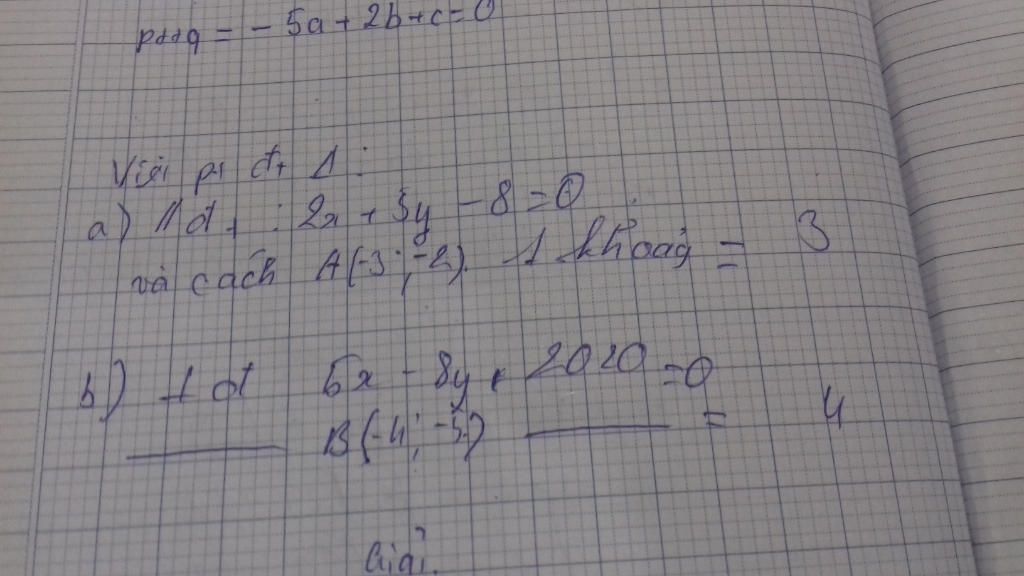 = - 5a + 2b + c = 0
Viết pt đt Δ :
a) // đt : 2x + 3y - 8 = 0
và cách A(-3 ; -2). 1 khoảng = 3
b) ⊥ đt 5x - 8y + 2020 = 0
B(-4; -5) = 4
Giải.